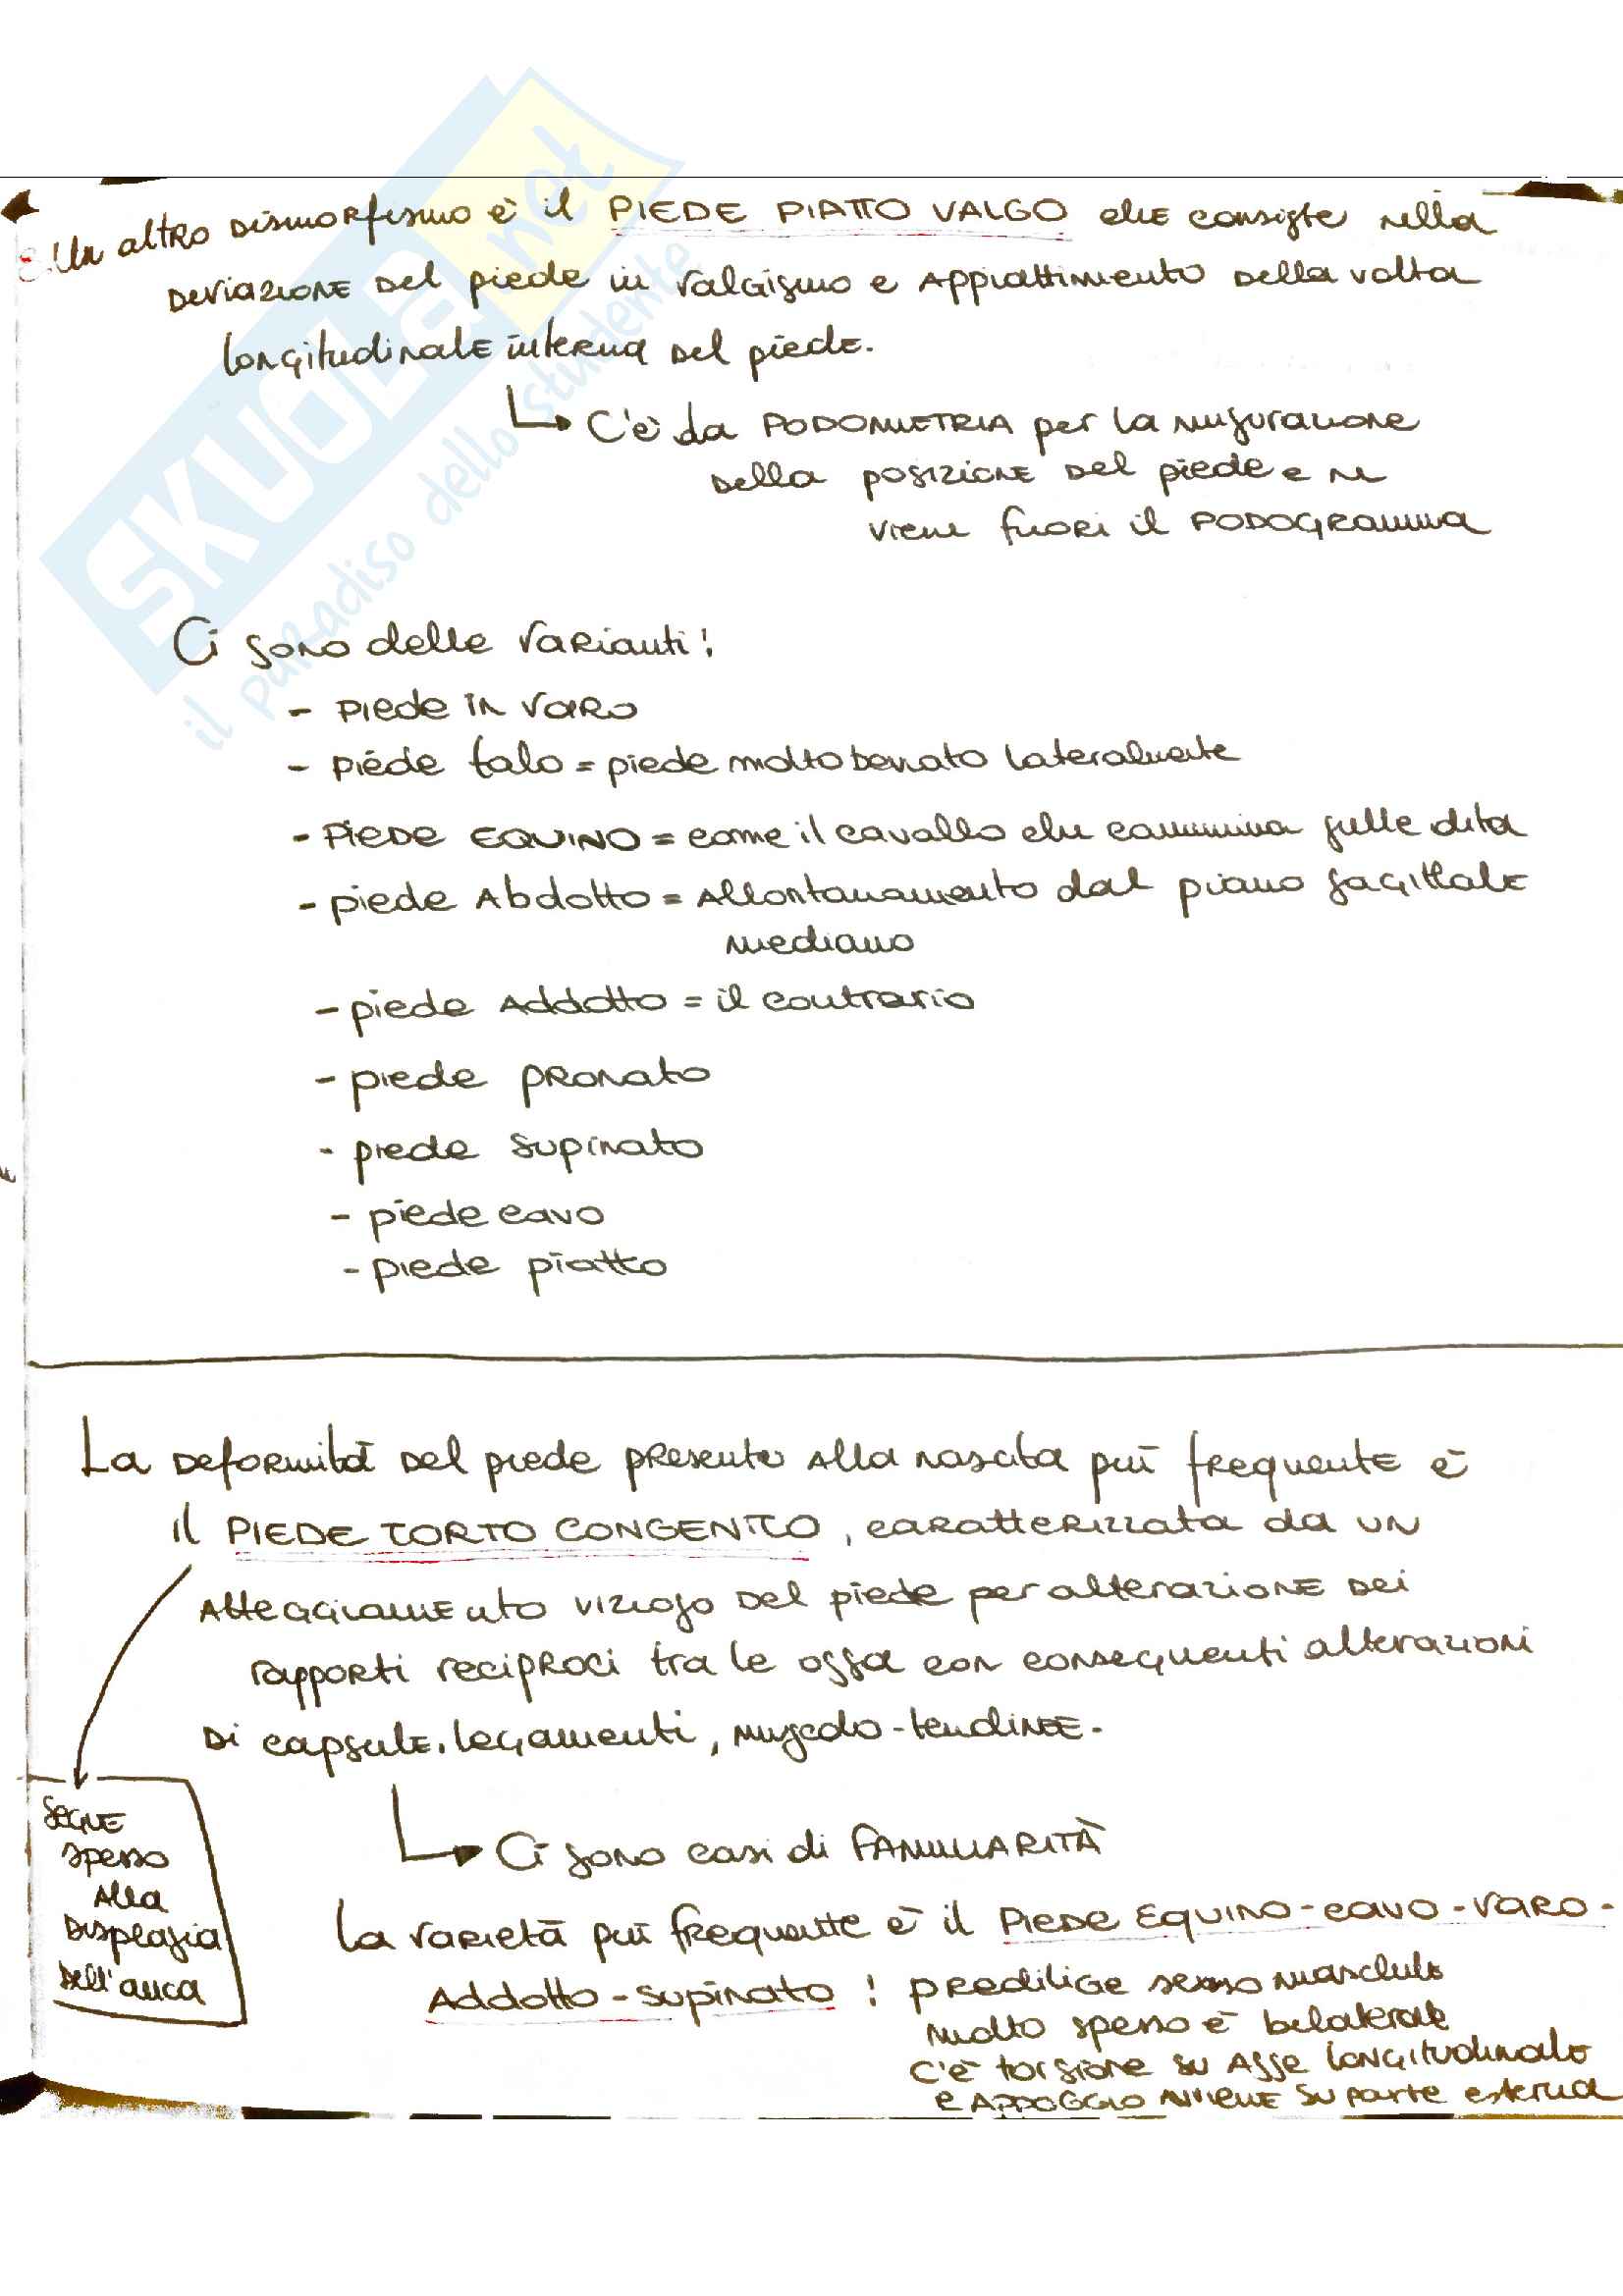 Un altro dismorfismo è il PIEDE PIATTO VALGO che consiste nella
deviazione del piede in valgismo e appiattimento della volta
longitudinale interna del piede.
C'è da PODOMETRIA per la misurazione
della posizione del piede e ne
viene fuori il PODOGRAMMA
Ci sono delle varianti:
- piede in varo
- piede talo = piede molto deviato lateralmente
- PIEDE EQUINO = come il cavallo che cammina sulle dita
- piede Abdotto = Allontanamento dal piano sagittale
mediano
- piede Addotto = il contrario
- piede pronato
- piede supinato
- piede cavo
- piede piatto
La deformità del piede presente alla nascita più frequente è
il PIEDE TORTO CONGENITO, caratterizzata da un
atteggiamento vizioso del piede per alterazione dei
rapporti reciproci tra le ossa con conseguenti alterazioni
di capsule, legamenti, muscolo-tendinee.
Segue
spesso
alla
displasia
dell'anca
Ci sono casi di FAMILIARITÀ
La varietà più frequente è il Piede Equino-cavo-varo-
Addotto-supinato : predilige sesso maschile
molto spesso è bilaterale
C'è torsione su asse longitudinale
e appoggio avviene su parte esterna
SKUOLA.net
il paradiso dello studente